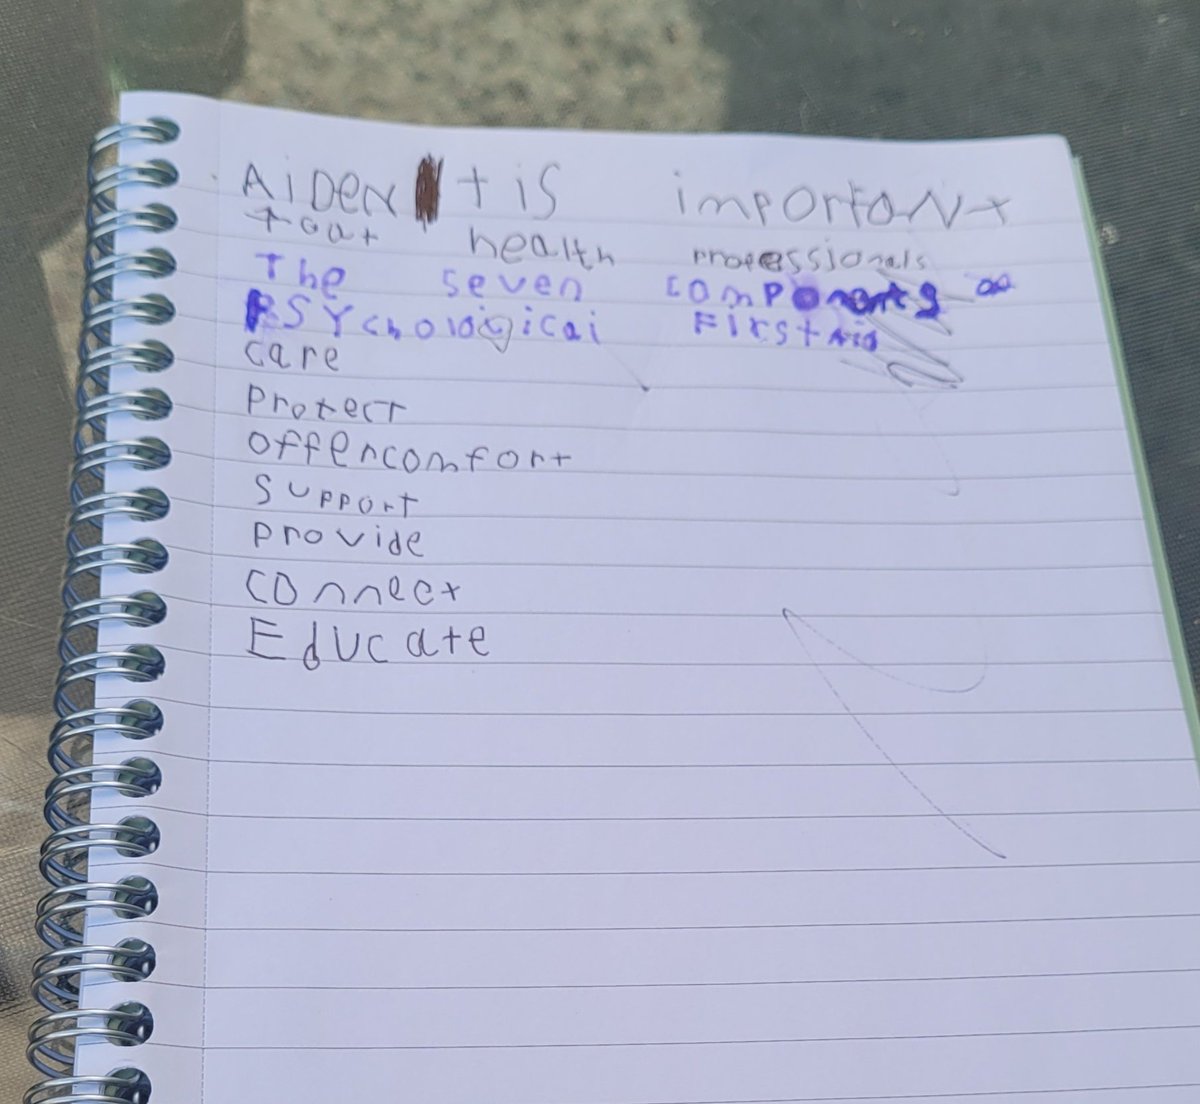 AiDEN t is importaNt
toat health professionals
The seven components
PSYchological First Aid
care
Protect
offer comfort
Support
provide
connect
Educate